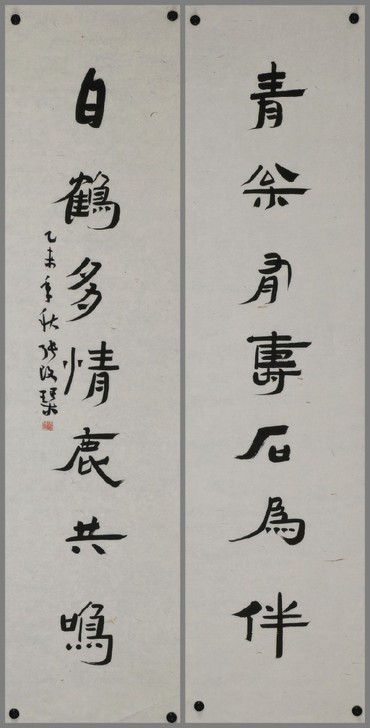 青枀有壽石為伴
白鶴多情鹿共鳴
乙未年秋張